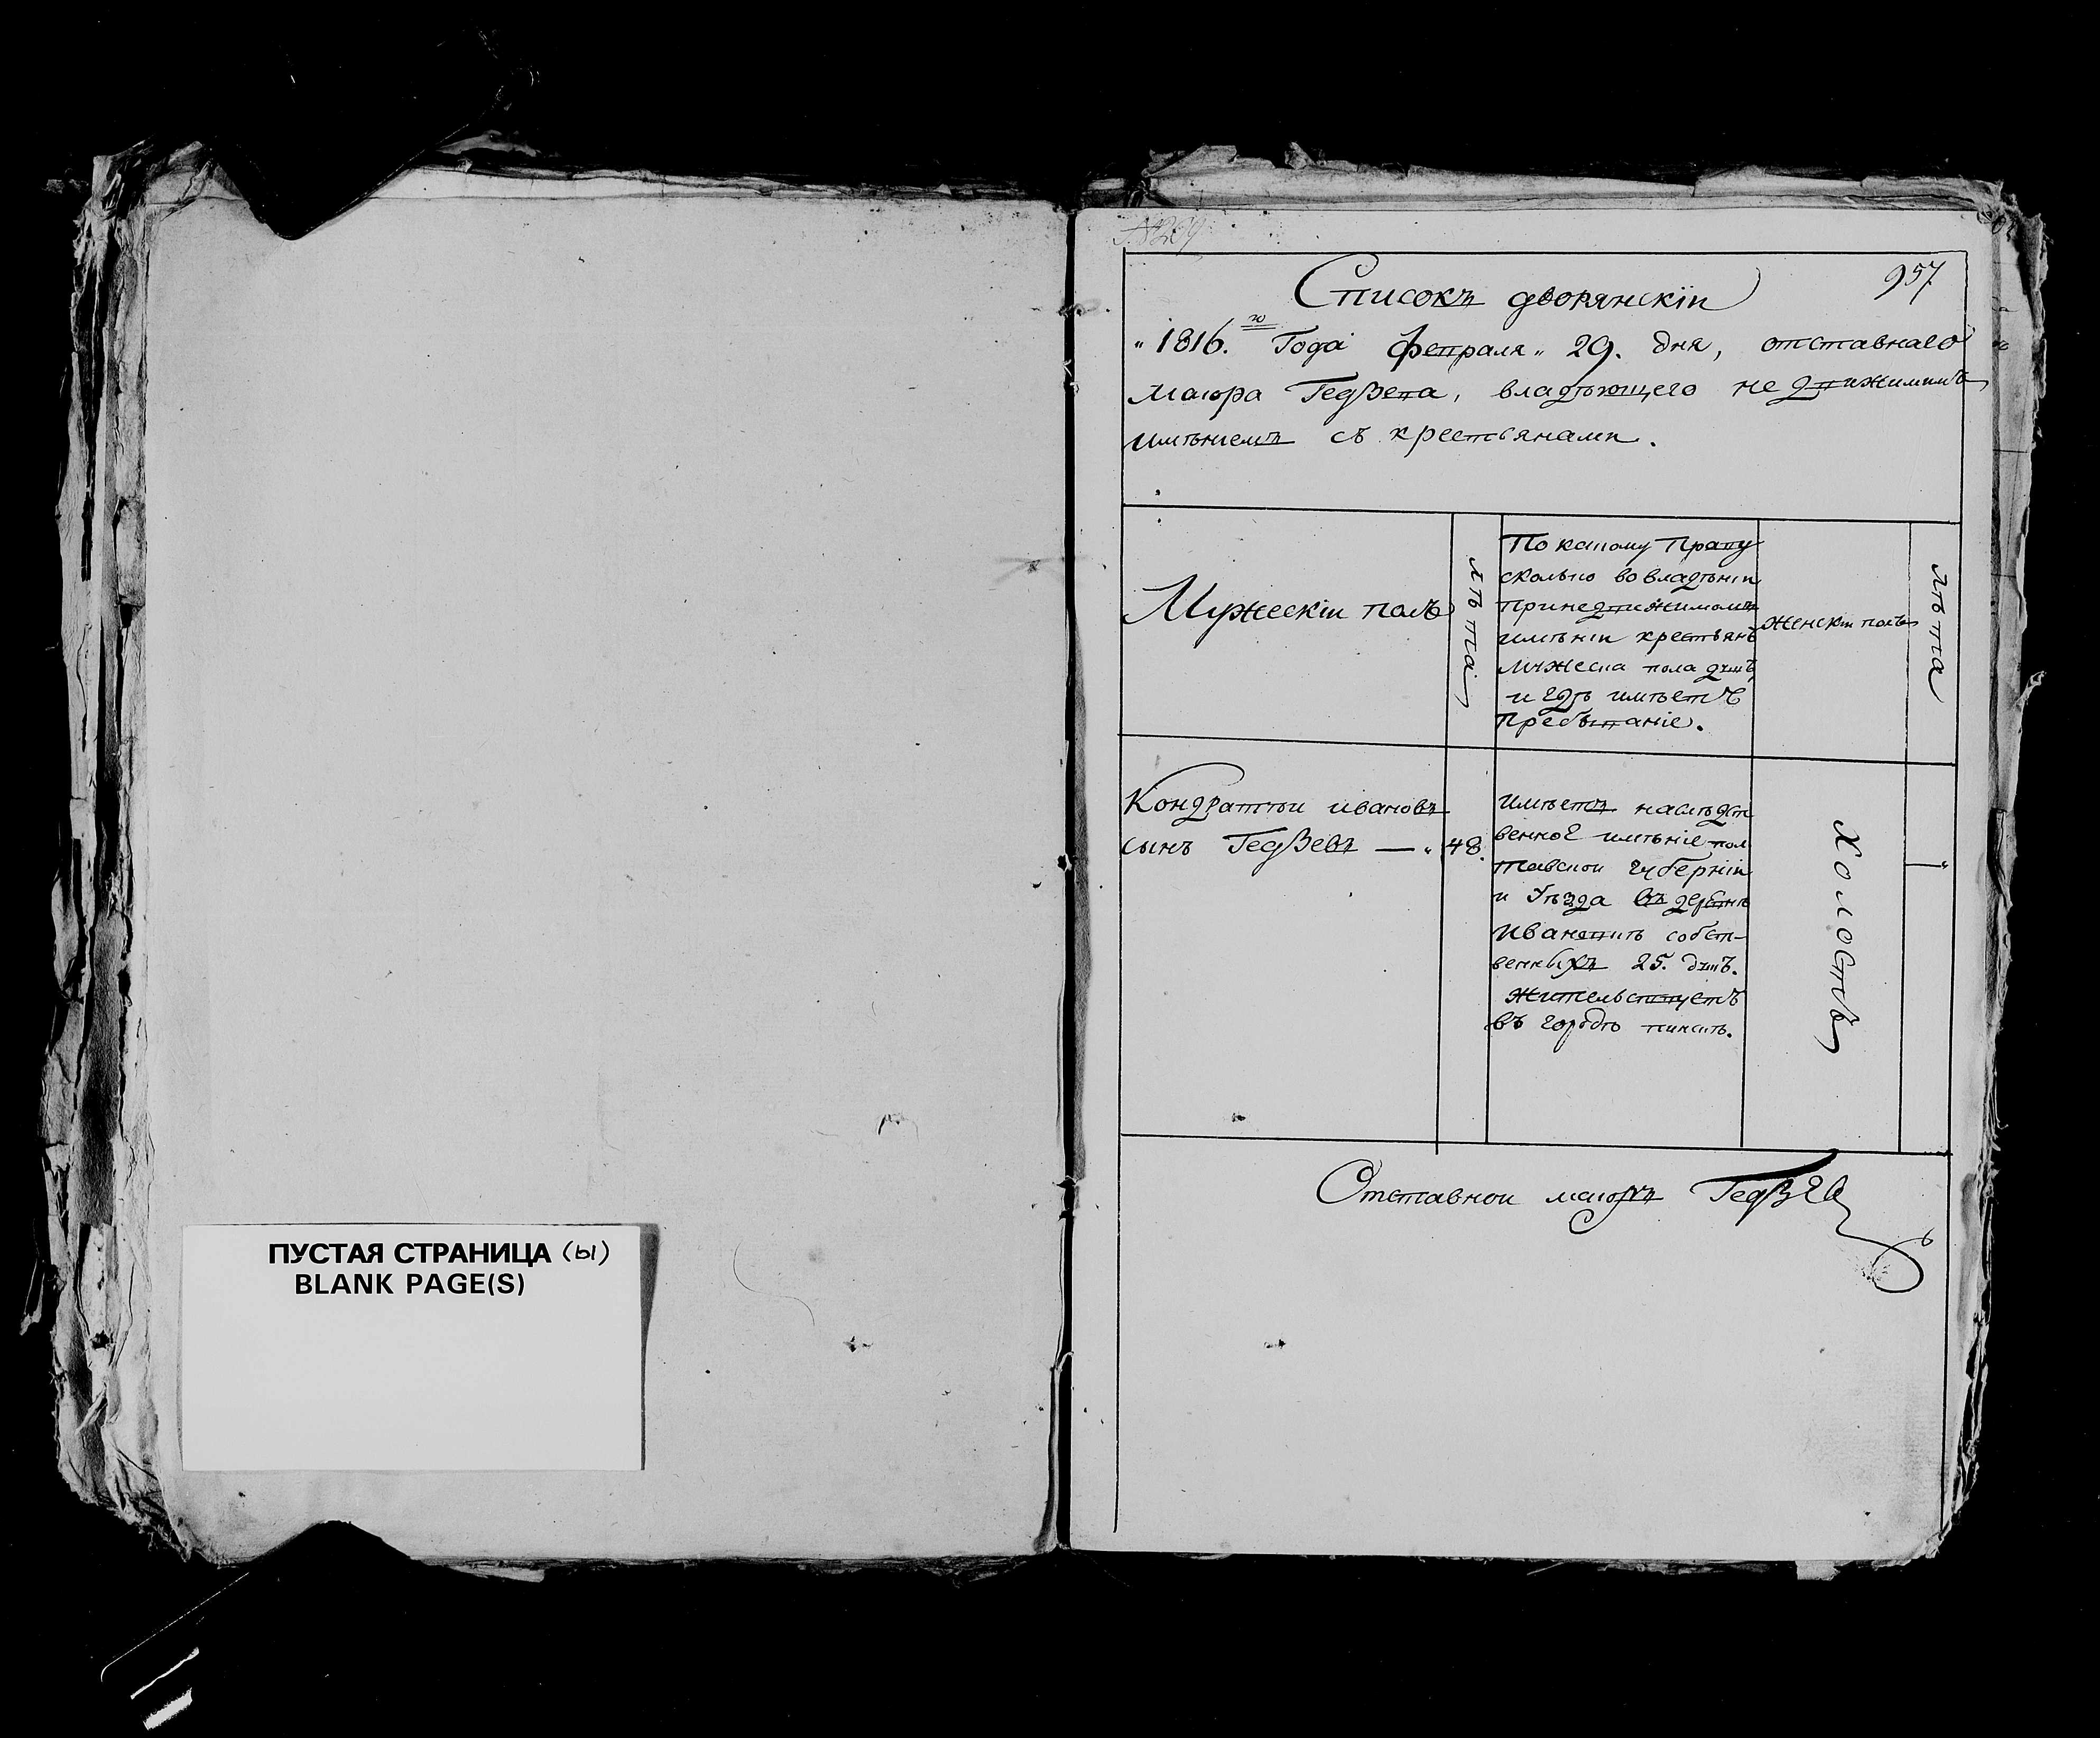 ПУСТАЯ СТРАНИЦА (ы)
BLANK PAGE(S)
957
Списокъ дворянскіи
„ 1816. го Года февраля „ 29. дня, отставнаго
маіора Гедзева, владѣющего недвижимимъ
имѣниемъ съ крестьянами.
Мужескіи полъ
лѣта
По какому праву
сколько во владѣніи
при недвижимомъ
имѣніи крестьянъ
мужеска пола душъ
и гдѣ имѣетъ
пребываніе.
Женскіи полъ
лѣта
Кондратіи ивановъ
сынъ Гедзевъ — „ 48.
имѣетъ наслѣдст
венное имѣніе пол
тавскои губерніи
и уѣзда въ деревнѣ
Ивановкѣ собст-
венныхъ 25. душъ.
жительствуетъ
въ городѣ
холостъ
„
Отставнои маіоръ Гедзев